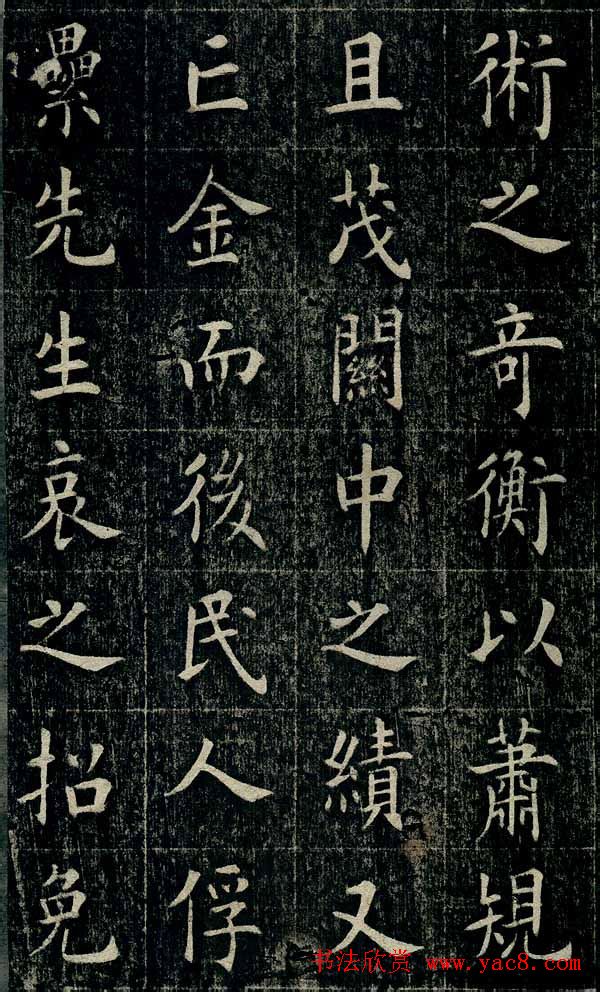 術之奇衡以蕭規
且茂關中之績又
亡金而後民人俘
纍先生哀之招免
书法欣赏 www.yac8.com